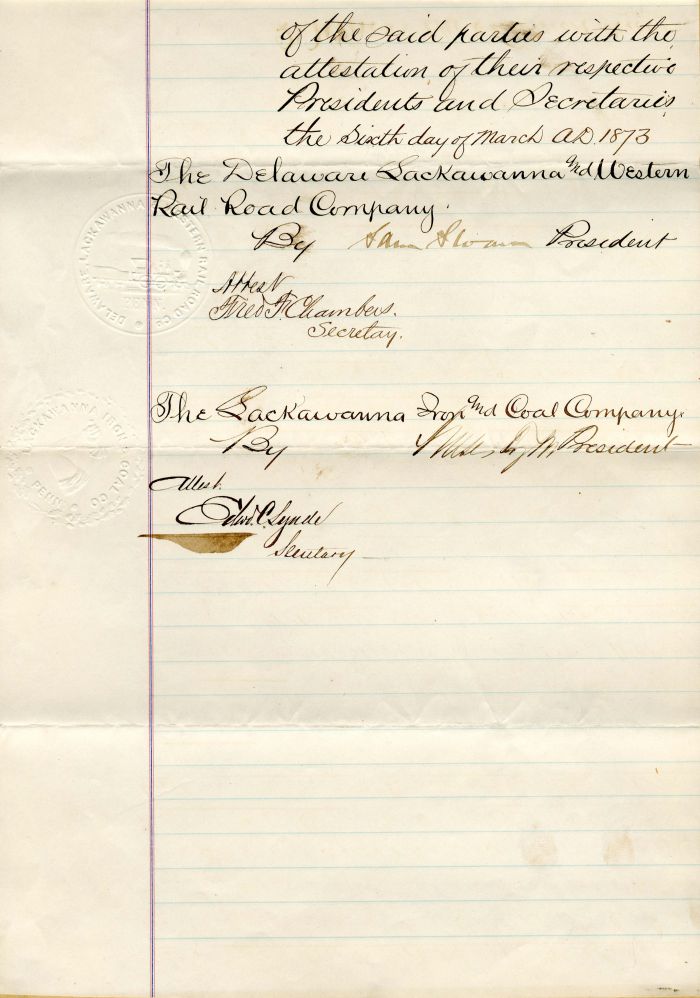 of the said parties with the
attestation of their respective
Presidents and Secretaries
the Sixth day of March A.D. 1873
The Delaware Lackawanna and Western
Rail Road Company.
By Sam Sloan President
Attest
Fred F. Chambers.
Secretay.
DELAWARE LACKAWANNA WESTERN RAILROAD CO
PENN
The Lackawanna Iron and Coal Company.
By President
LACKAWANNA IRON COAL CO
PENN
Attest.
Edwd. C. Lynde
Secretary